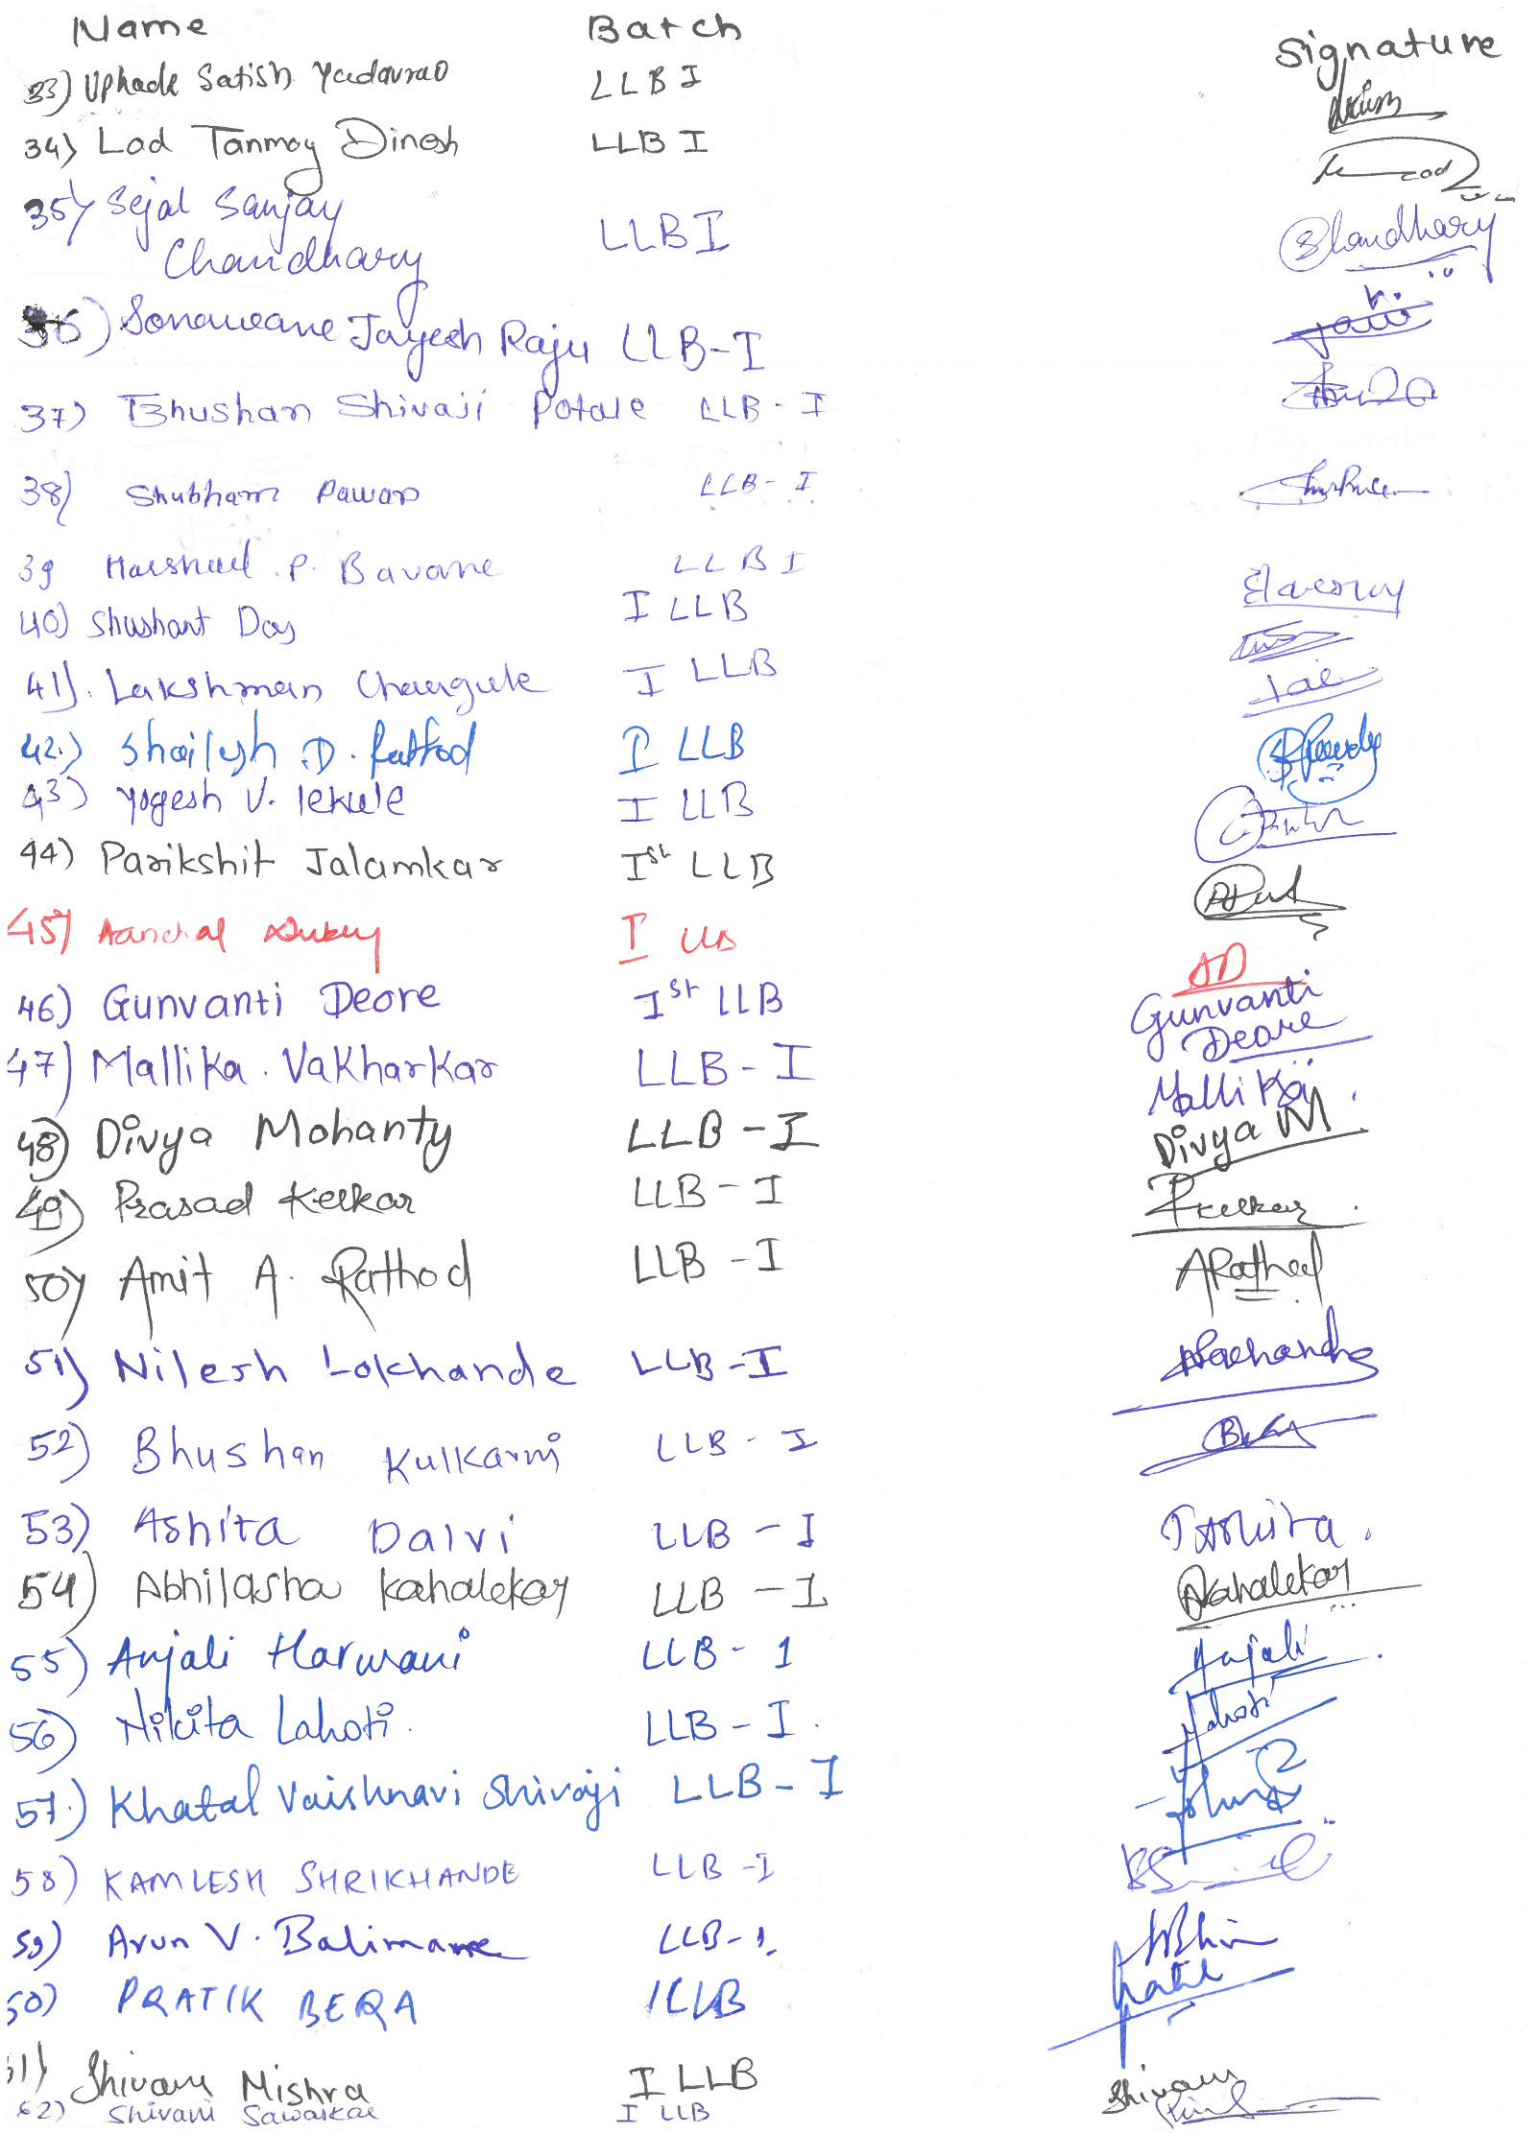 Name Batch Signature
33) Uphade Satish Yadavrao LLB I
34) Lad Tanmay Dinesh LLB I
35) Sejal Sanjay
Chaudhary LLB I Chaudhary
36) Sonawane Jayesh Raju LLB-I
37) Bhushan Shivaji Potale LLB-I
38) Shubham Pawar LLB-I
39 Harshad P. Bavane LLB I
40) Shushant Das I LLB
41). Lakshman Chaugule I LLB
42.) Shailesh D. Rathod I LLB
43) Yogesh V. Tekule I LLB
44) Parikshit Jalamkar Ist LLB
45) Aanchal Dubey I LLB AD
46) Gunvanti Deore Ist LLB Gunvanti
Deore
47) Mallika. Vakharkar LLB-I Mallika.
48) Divya Mohanty LLB-I Divya M
49) Prasad Kelkar LLB-I PKelkar
50) Amit A. Rathod LLB-I ARathod
51) Nilesh Lokhande LLB-I
52) Bhushan Kulkarni LLB-I
53) Ashita Dalvi LLB-I Ashita.
54) Abhilasha Kahalekar LLB-I AKahalekar
55) Anjali Harwani LLB-1 Anjali
56) Nikita Lahoti. LLB-I. Lahoti
57.) Khatal Vaishnavi Shivaji LLB-I
58) KAMLESH SHRIKHANDE LLB-I
59) Arun V. Balimane LLB-1.
60) PRATIK BERA I LLB Pratik
61) Shivam Mishra I LLB Shivam
62) Shivani Sawarkar I LLB